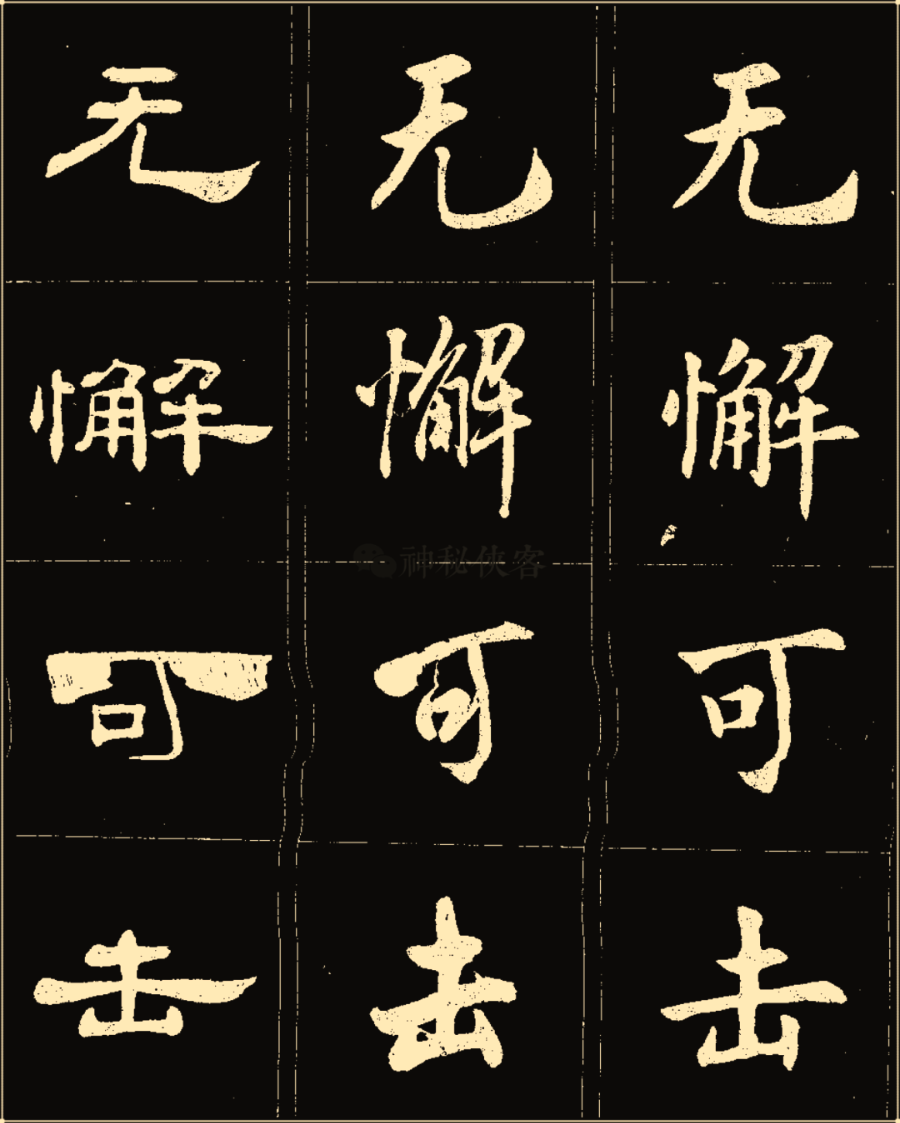 无懈可击
无懈可击
无懈可击
神秘侠客